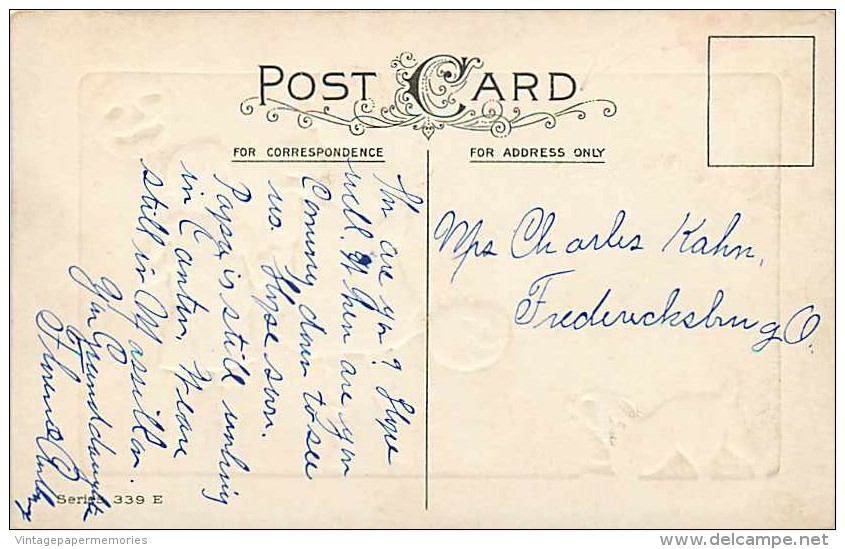 POST CARD
FOR CORRESPONDENCE
FOR ADDRESS ONLY
How are you? Hope
well. When are you
Coming down to see
us. Hope soon.
Papa is still working
in Canton. We are
still in Massillon.
Your Granddaughter
Florence
Mrs Charles Kahn,
Fredericksburg O.
Series 339 E
Vintagepapermemories
www.delcampe.net